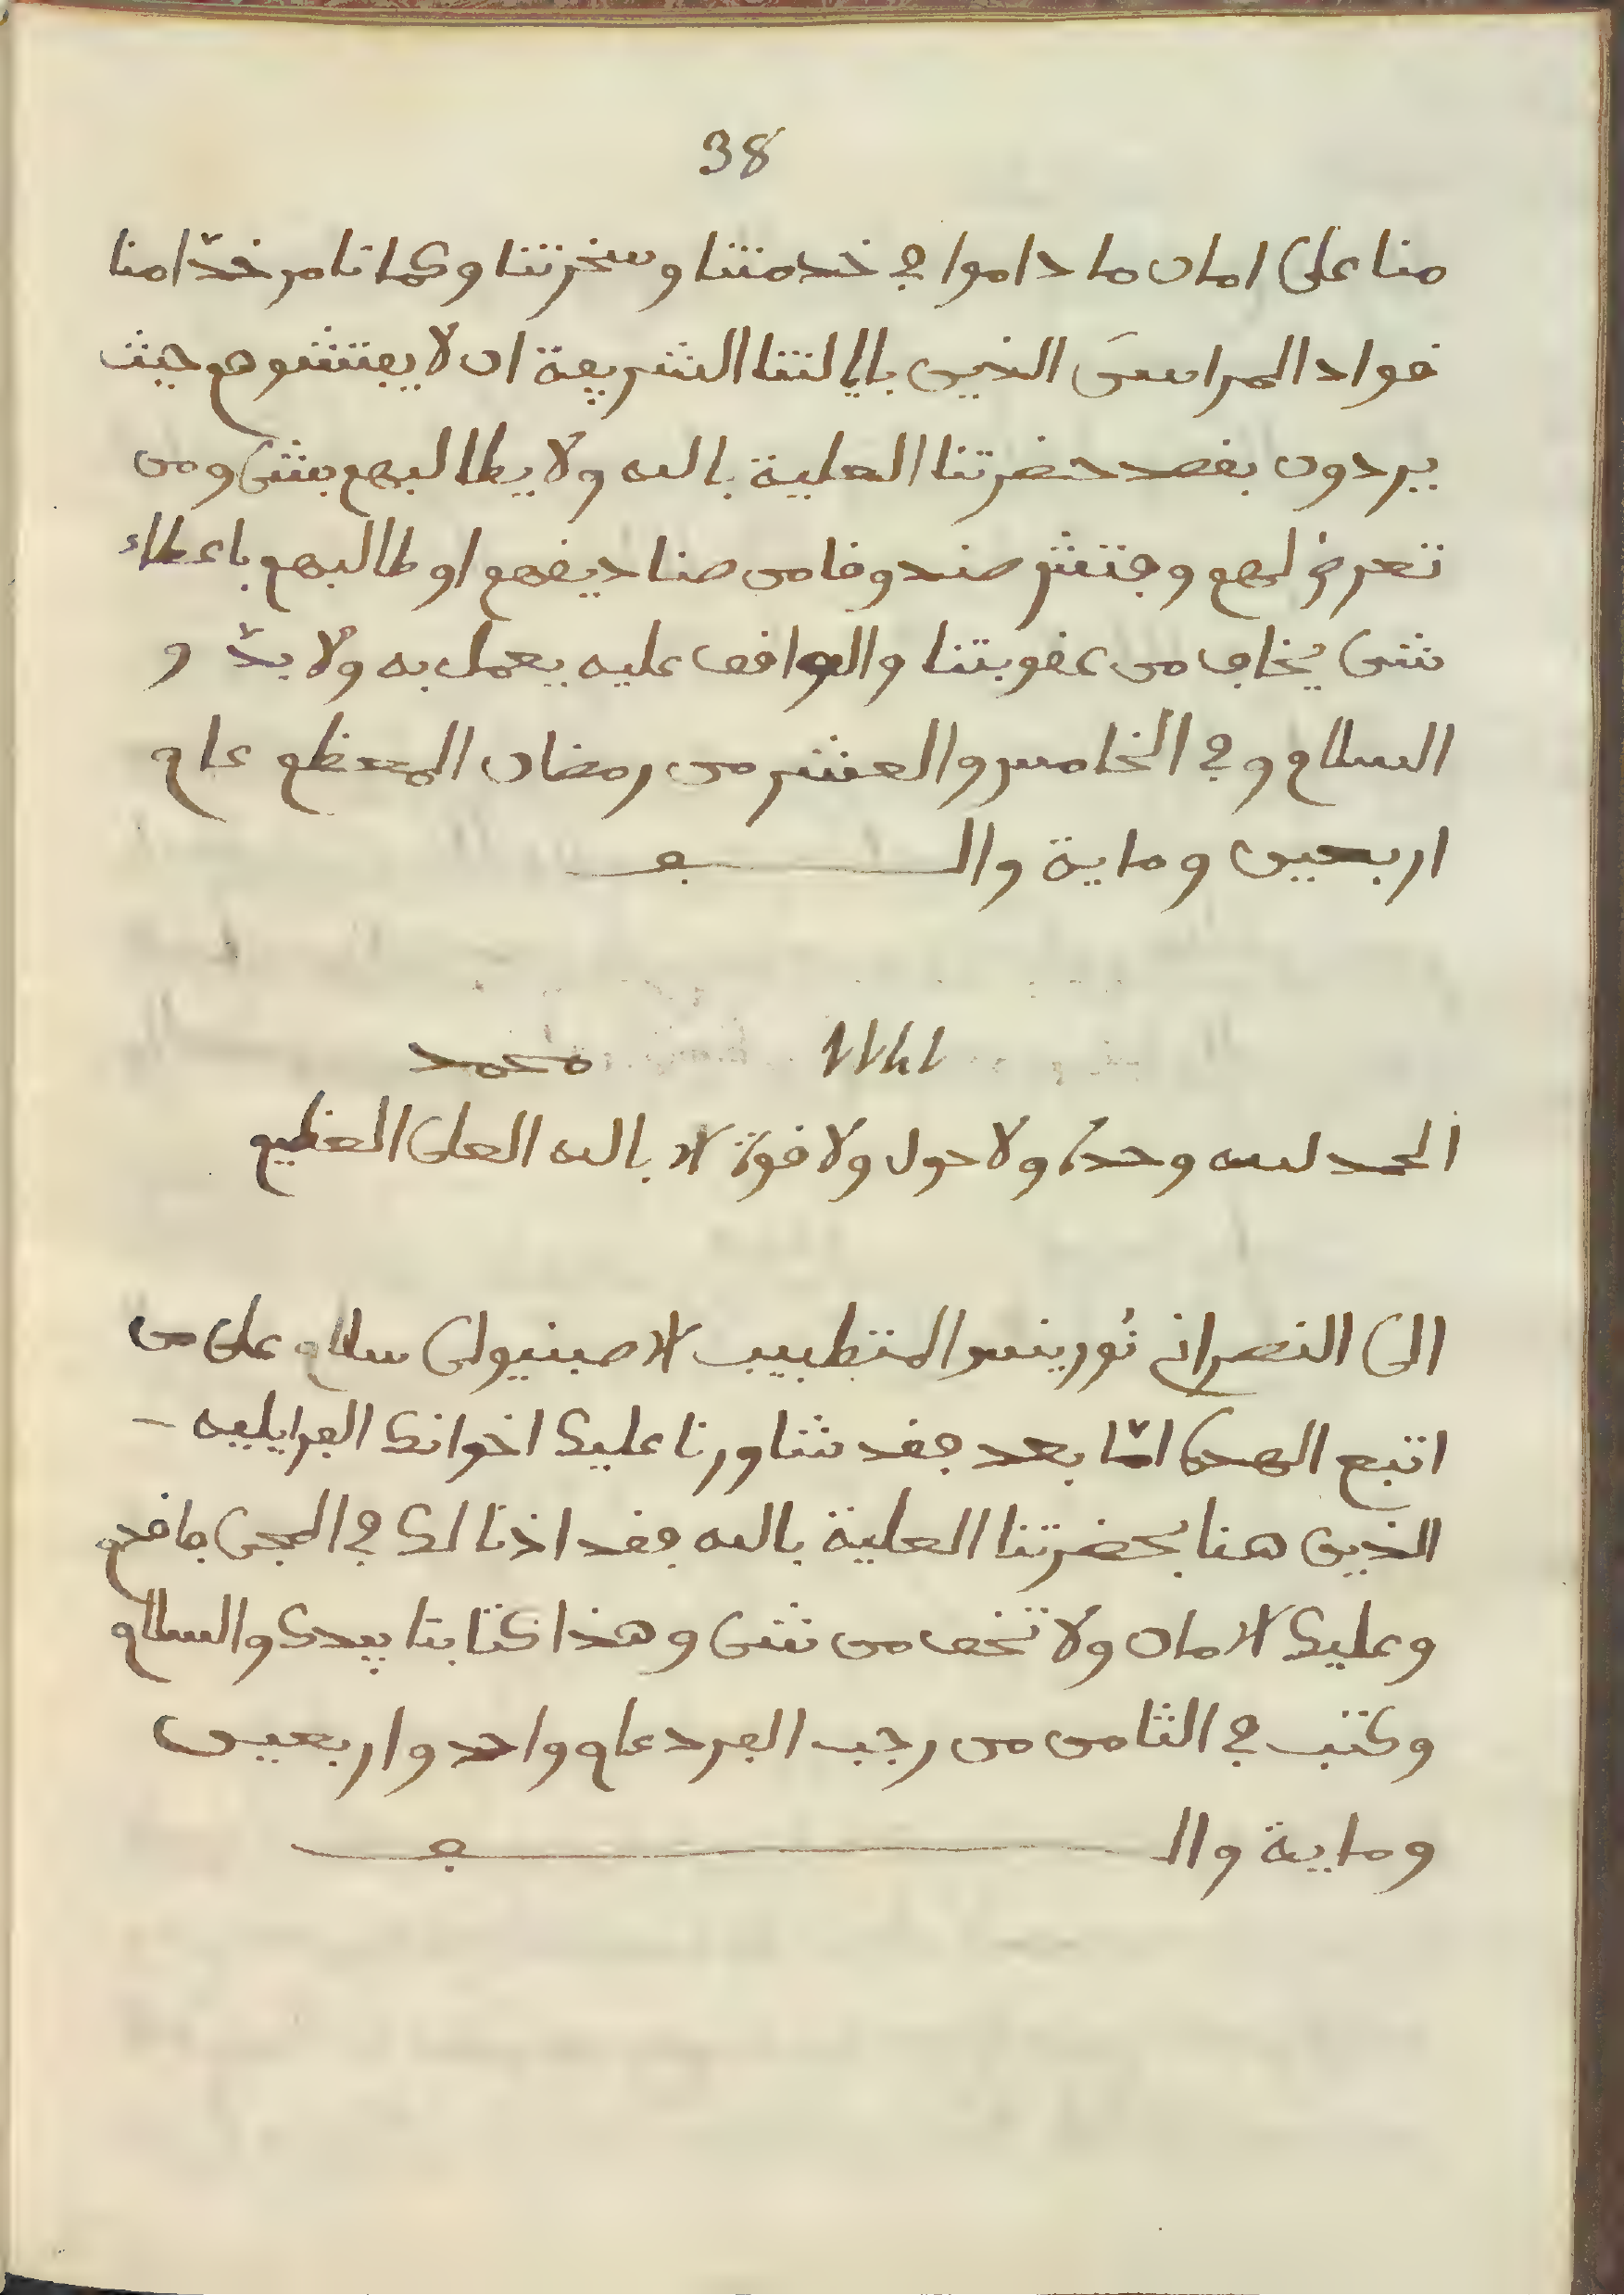 38
منا على امان ما داموا في خدمتنا وسخرتنا وكما نامر خدّامنا
قواد المراسىَ الذين بايالتنا الشريفة ان لا يفتشوهم حيث
يردون بقصد حضرتنا العلية بالله ولا يطالبهم بشئ ومن
تعرض لهم وفتش صندوقا من صناديقهم او طالبهم باعطاء
شئ يخاف من عقوبتنا والواقف عليه يعمل به ولا بدّ و
السلام وفي الخامس والعشر من رمضان المعظم عام
اربعين وماية والف
1141 محمد
الحمد لله وحده ولا حول ولا قوة الا بالله العلى العظيم
الى النصراني تُورينس المتطبيب الاصبنيولى سلام على من
اتبع الهدى امّا بعد فقد شاورنا عليك اخوانك الفرايليه
الذين هنا بحضرتنا العلية بالله فقد اذنا لك في المجئ فاقدم
وعليك الامان ولا تخف من شئ وهذا كتابنا بيدك والسلام
وكتب في الثامن من رجب الفرد عام واحد واربعين
وماية والف